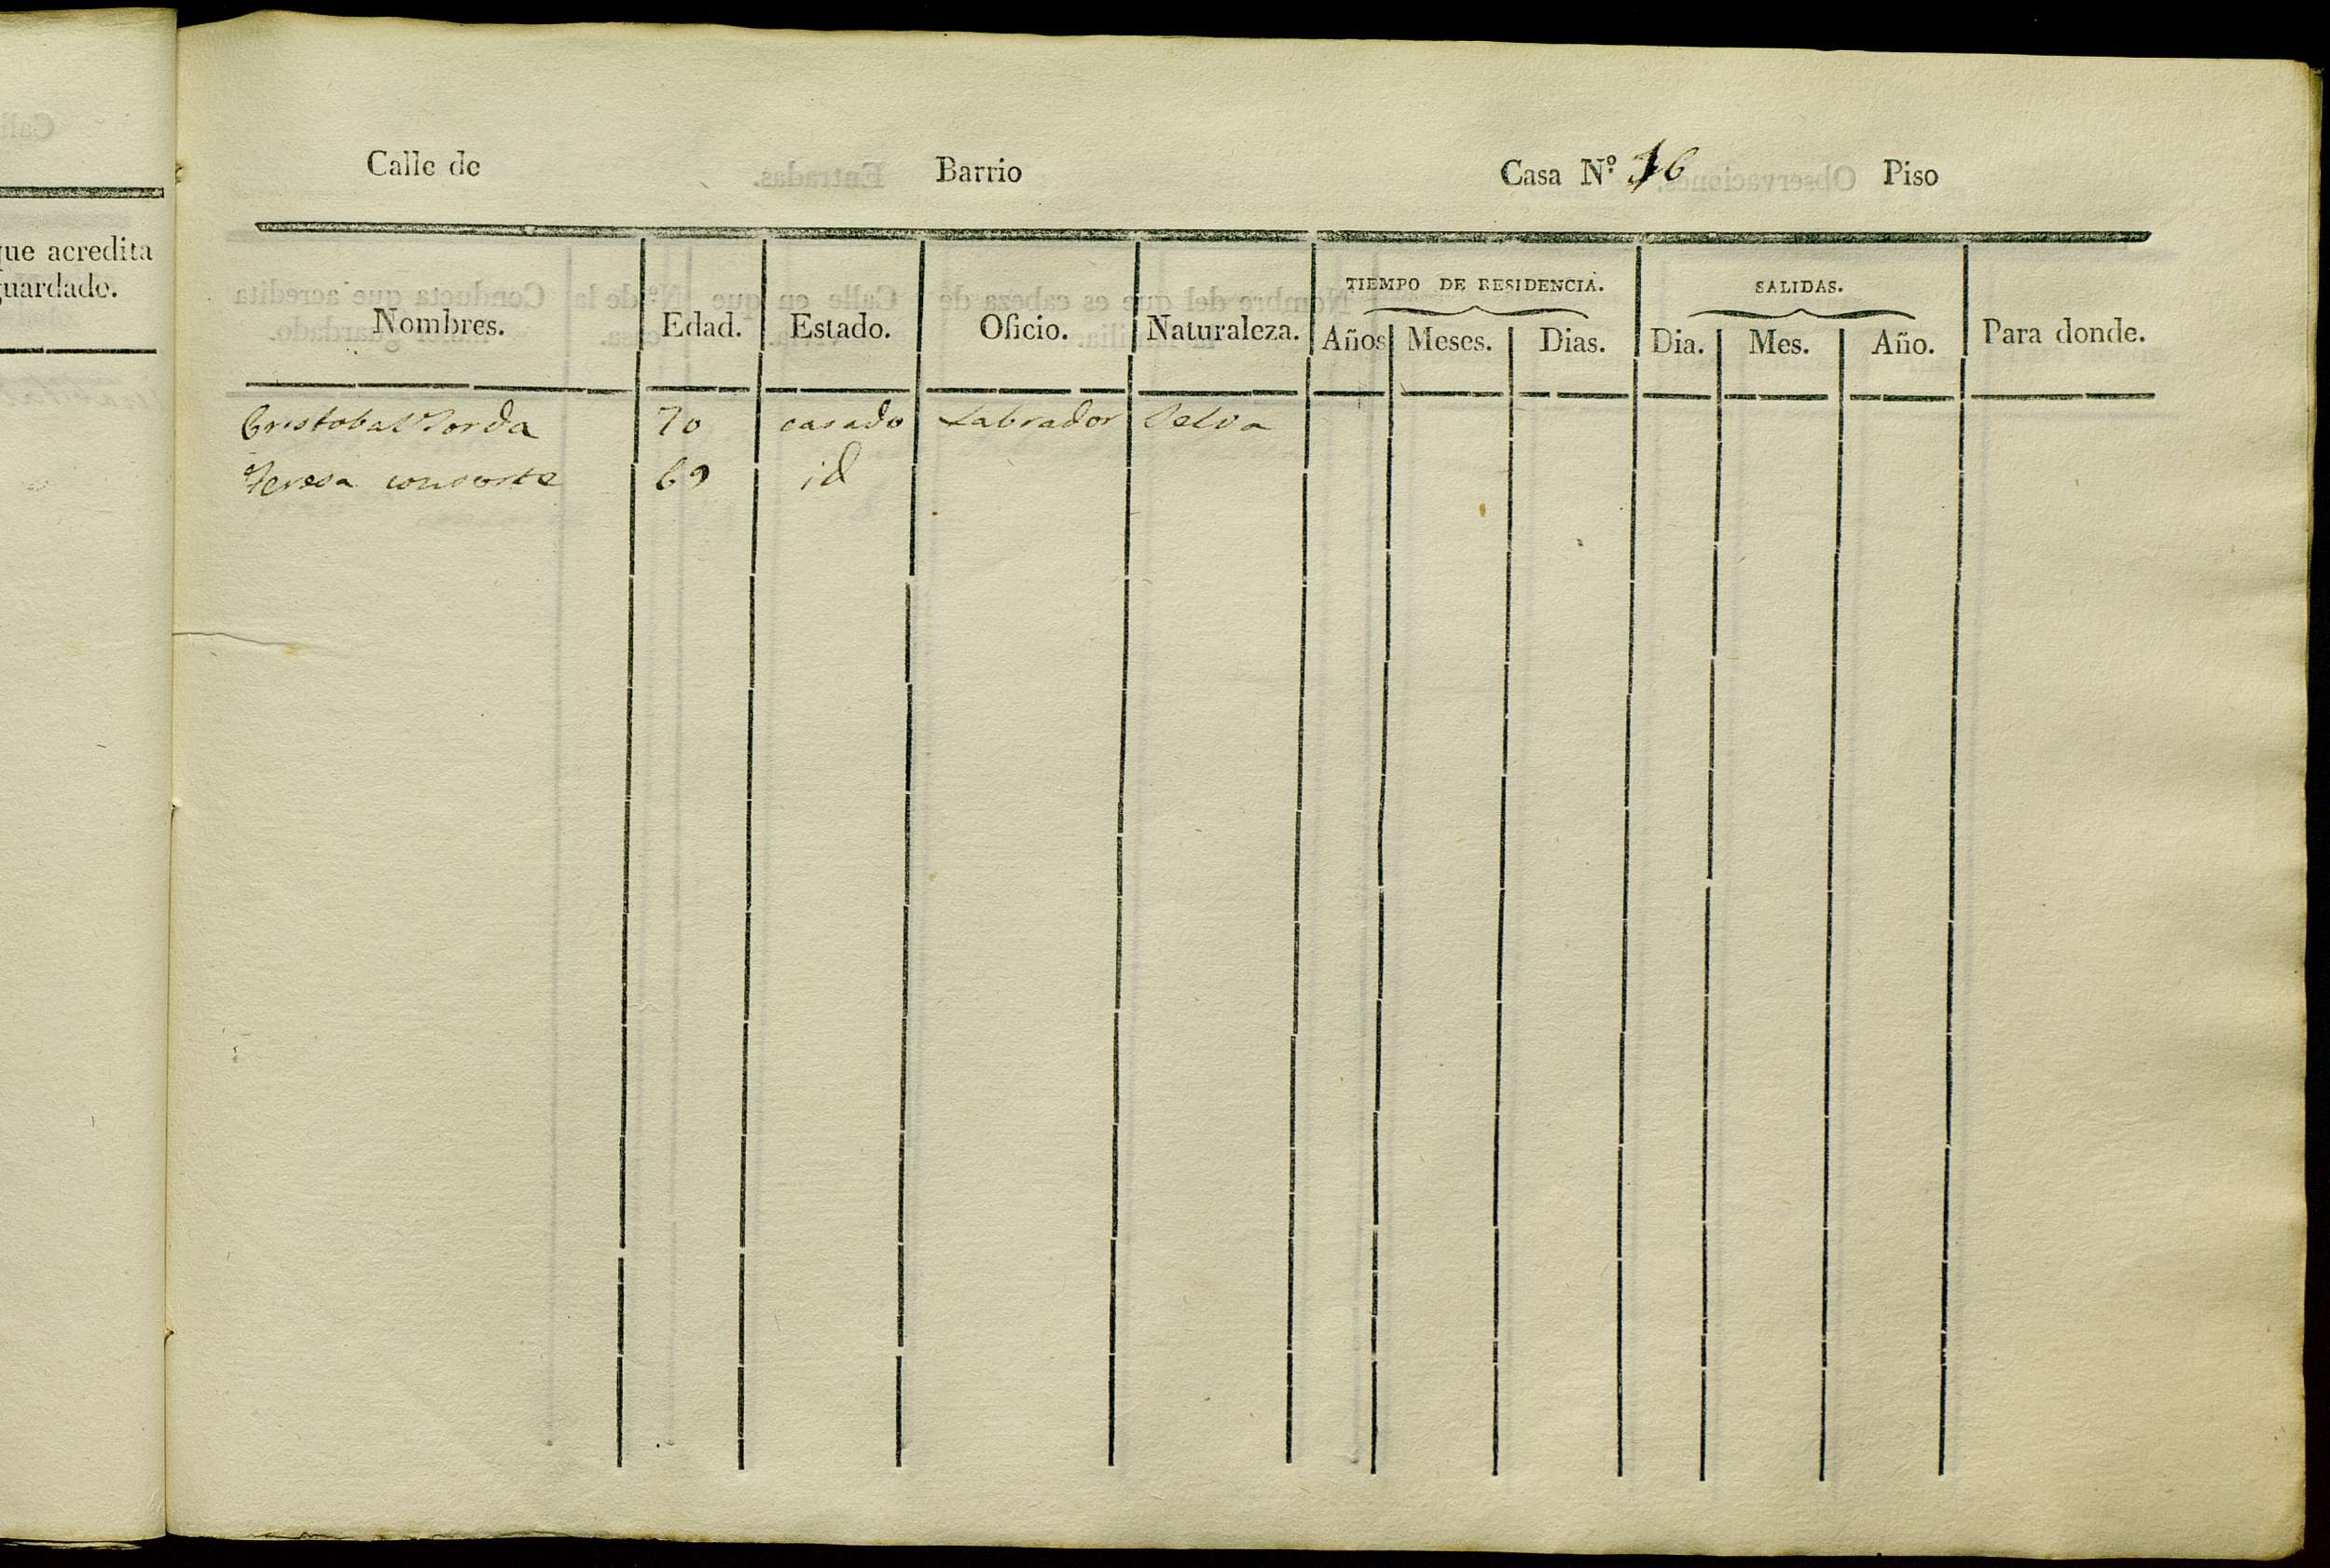 que acredita
guardado.
Calle de Barrio Casa N.º 16 Piso
TIEMPO DE RESIDENCIA. SALIDAS.
Nombres. Edad. Estado. Oficio. Naturaleza. Años Meses. Dias. Dia. Mes. Año. Para donde.
Cristobal Jorda 70 casado Labrador Selva
Teresa consorte 69 id